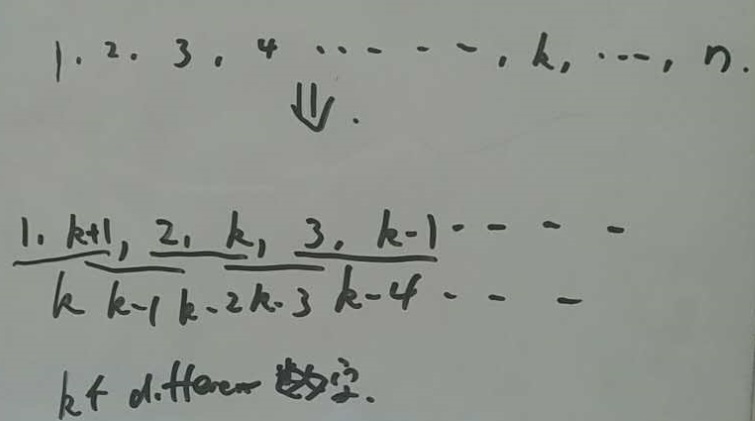 1. 2. 3. 4 ······, k, ···, n.
⇓.
1. k+1, 2, k, 3. k-1 - - - -
k k-1 k-2 k-3 k-4 - - -
k个 different 数字.